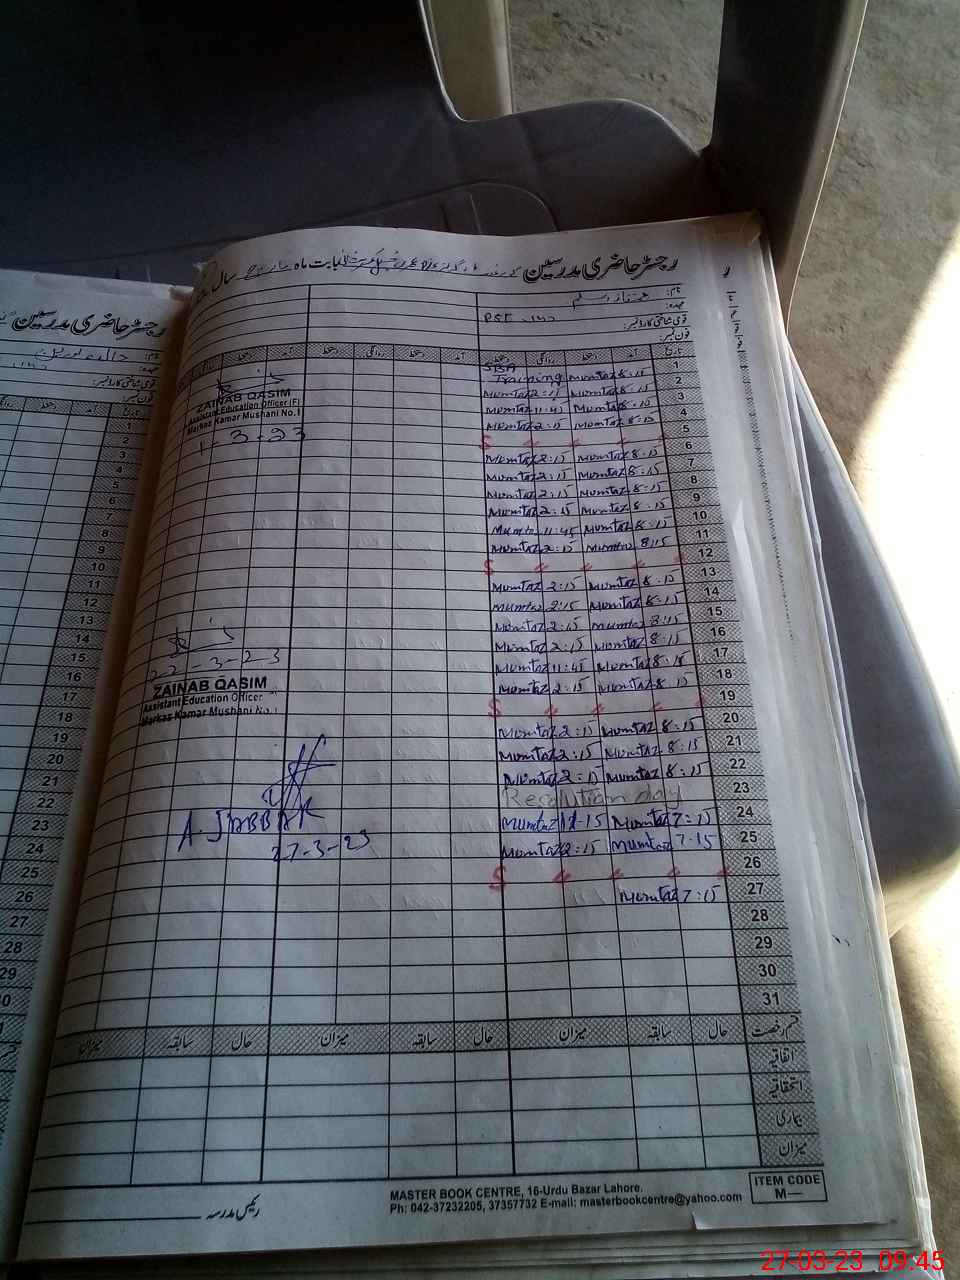 رجسٹر حاضری مدرسین
بابت ماہ
سال
نام:
عہدہ:
PST
قومی شناختی کارڈ نمبر:
فون نمبر:
تاریخ آمد دستخط روانگی دستخط آمد دستخط روانگی دستخط آمد دستخط روانگی
1 Mumtaz 8:15 SBA Training
2 Mumtaz 8:15 Mumtaz 2:15
3 Mumtaz 8:15 Mumtaz 11:45
4 Mumtaz 8:15 Mumtaz 2:15
5 S
6 Mumtaz 8:15 Mumtaz 2:15
7 Mumtaz 8:15 Mumtaz 2:15
8 Mumtaz 8:15 Mumtaz 2:15
9 Mumtaz 8:15 Mumtaz 2:15
10 Mumtaz 8:15 Mumtaz 11:45
11 Mumtaz 8:15 Mumtaz 2:15
12 S
13 Mumtaz 8:15 Mumtaz 2:15
14 Mumtaz 8:15 Mumtaz 2:15
15 Mumtaz 8:15 Mumtaz 2:15
16 Mumtaz 8:15 Mumtaz 2:15
17 Mumtaz 8:15 Mumtaz 11:45
18 Mumtaz 8:15 Mumtaz 2:15
19 S
20 Mumtaz 8:15 Mumtaz 2:15
21 Mumtaz 8:15 Mumtaz 2:15
22 Mumtaz 8:15 Mumtaz 2:15
23 Resolution day
24 Mumtaz 7:15 Mumtaz 12-15
25 Mumtaz 7-15 Mumtaz 2:15
26 S
27 Mumtaz 7:15
28
29
30
31
ZAINAB QASIM
Assistant Education Officer (F)
Markaz Kamar Mushani No.1
1-3-23
22-3-23
ZAINAB QASIM
Assistant Education Officer
Markaz Kamar Mushani No.1
A. JABBAR
27-3-23
قسم رخصت حال سابقہ میزان حال سابقہ میزان حال سابقہ میزان
اتفاقیہ
استحقاقیہ
بیماری
میزان
رئیس مدرسہ
MASTER BOOK CENTRE, 16-Urdu Bazar Lahore.
Ph: 042-37232205, 37357732 E-mail: masterbookcentre@yahoo.com
ITEM CODE
M—
رجسٹر حاضری مدرسین
نام:
عہدہ:
قومی شناختی کارڈ نمبر:
فون نمبر:
تاریخ آمد دستخط روانگی
1
2
3
4
5
6
7
8
9
10
11
12
13
14
15
16
17
18
19
20
21
22
23
24
25
26
27
28
29
30
27-03-23 09:45